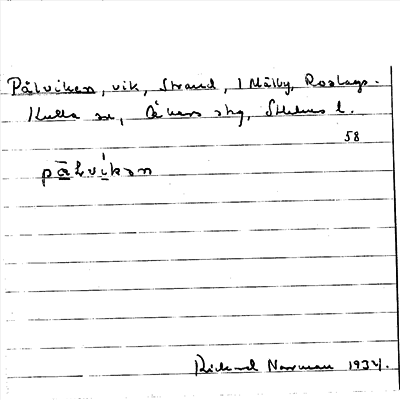 Pålviken, vik, Strand, 1 Mälby, Roslags-
Kulla sn, Åkers skg, Sthlms l.
58
pålvikən
Rickard Norrman 1934.